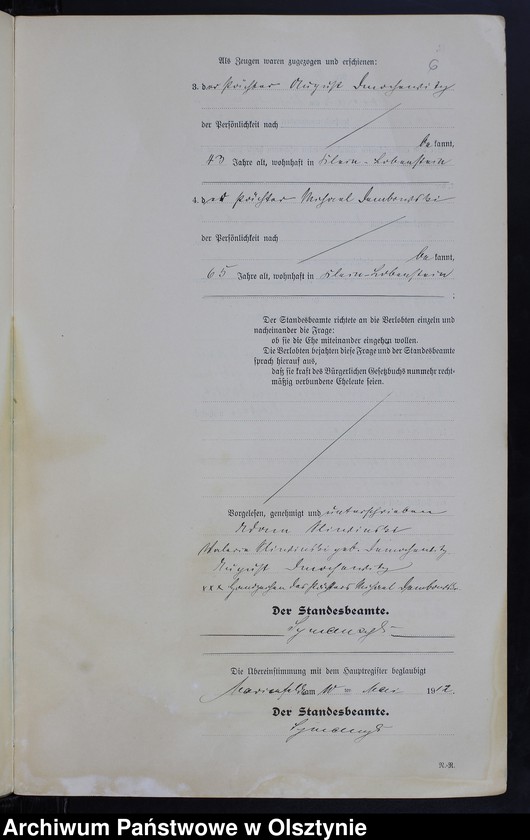 6
Als Zeugen waren zugezogen und erschienen:
3. der Pächter August Dmochewitz
der Persönlichkeit nach
be kannt,
43 Jahre alt, wohnhaft in Klein-Lobenstein
4. der Pächter Michael Dembowski
der Persönlichkeit nach
be kannt,
65 Jahre alt, wohnhaft in Klein-Lobenstein
;
Der Standesbeamte richtete an die Verlobten einzeln und
nacheinander die Frage:
ob sie die Ehe miteinander eingehen wollen.
Die Verlobten bejahten diese Frage und der Standesbeamte
sprach hierauf aus,
daß sie kraft des Bürgerlichen Gesetzbuchs nunmehr recht-
mäßig verbundene Eheleute seien.
Vorgelesen, genehmigt und unterschrieben
Adam
Valeria geb.
August Dmochewitz
xxx Handzeichen des Pächters Michael Dembowski
Der Standesbeamte.
Die Übereinstimmung mit dem Hauptregister beglaubigt
Marienfelde am 10 ten Mai 1912.
Der Standesbeamte.
N.-R.
Archiwum Państwowe w Olsztynie